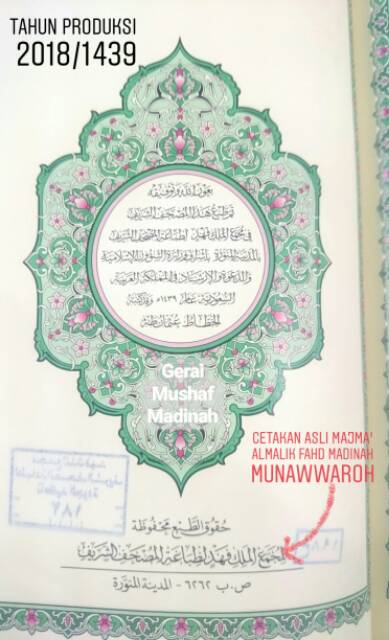 TAHUN PRODUKSI
2018/1439
بعون الله وتوفيقه
تم طبع هذا المصحف الشريف
في مجمع الملك فهد لطباعة المصحف الشريف
بالمدينة المنورة بإشراف وزارة الشؤون الإسلامية
والدعوة والإرشاد في المملكة العربية
السعودية عام ١٤٣٩هـ وكتبه
الخطاط عثمان طه
Gerai
Mushaf
Madinah
CETAKAN ASLI MAJMA'
ALMALIK FAHD MADINAH
MUNAWWAROH
٧٨١
حقوق الطبع محفوظة
لمجمع الملك فهد لطباعة المصحف الشريف
ص.ب ٦٢٦٢ - المدينة المنورة